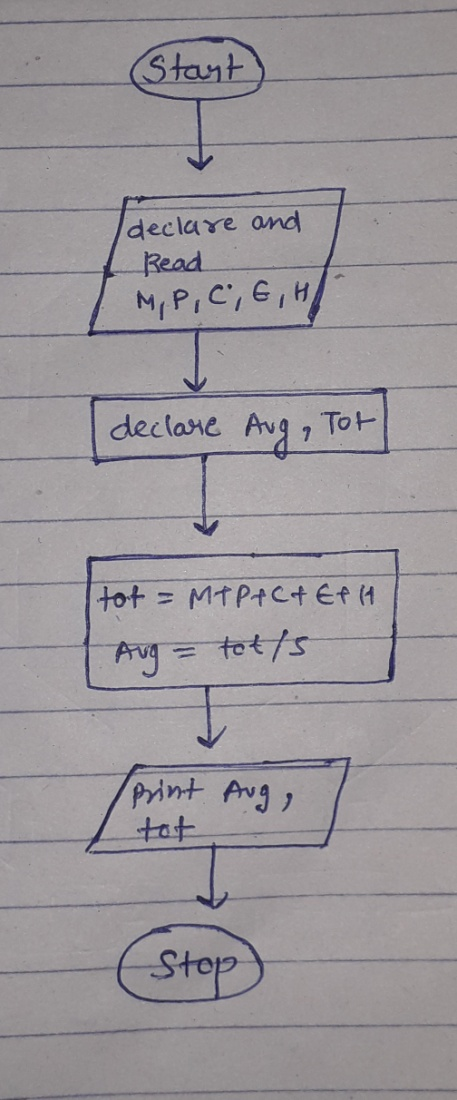 Start
declare and
Read
M, P, C, E, H
declare Avg, Tot
tot = M+P+C+E+H
Avg = tot/5
print Avg,
tot
Stop